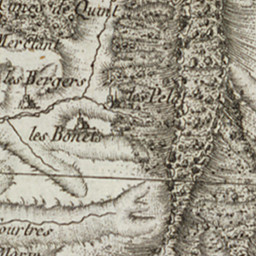 de Quint
Merclant
les Bergers
les Pel
les Bonets
ourtres